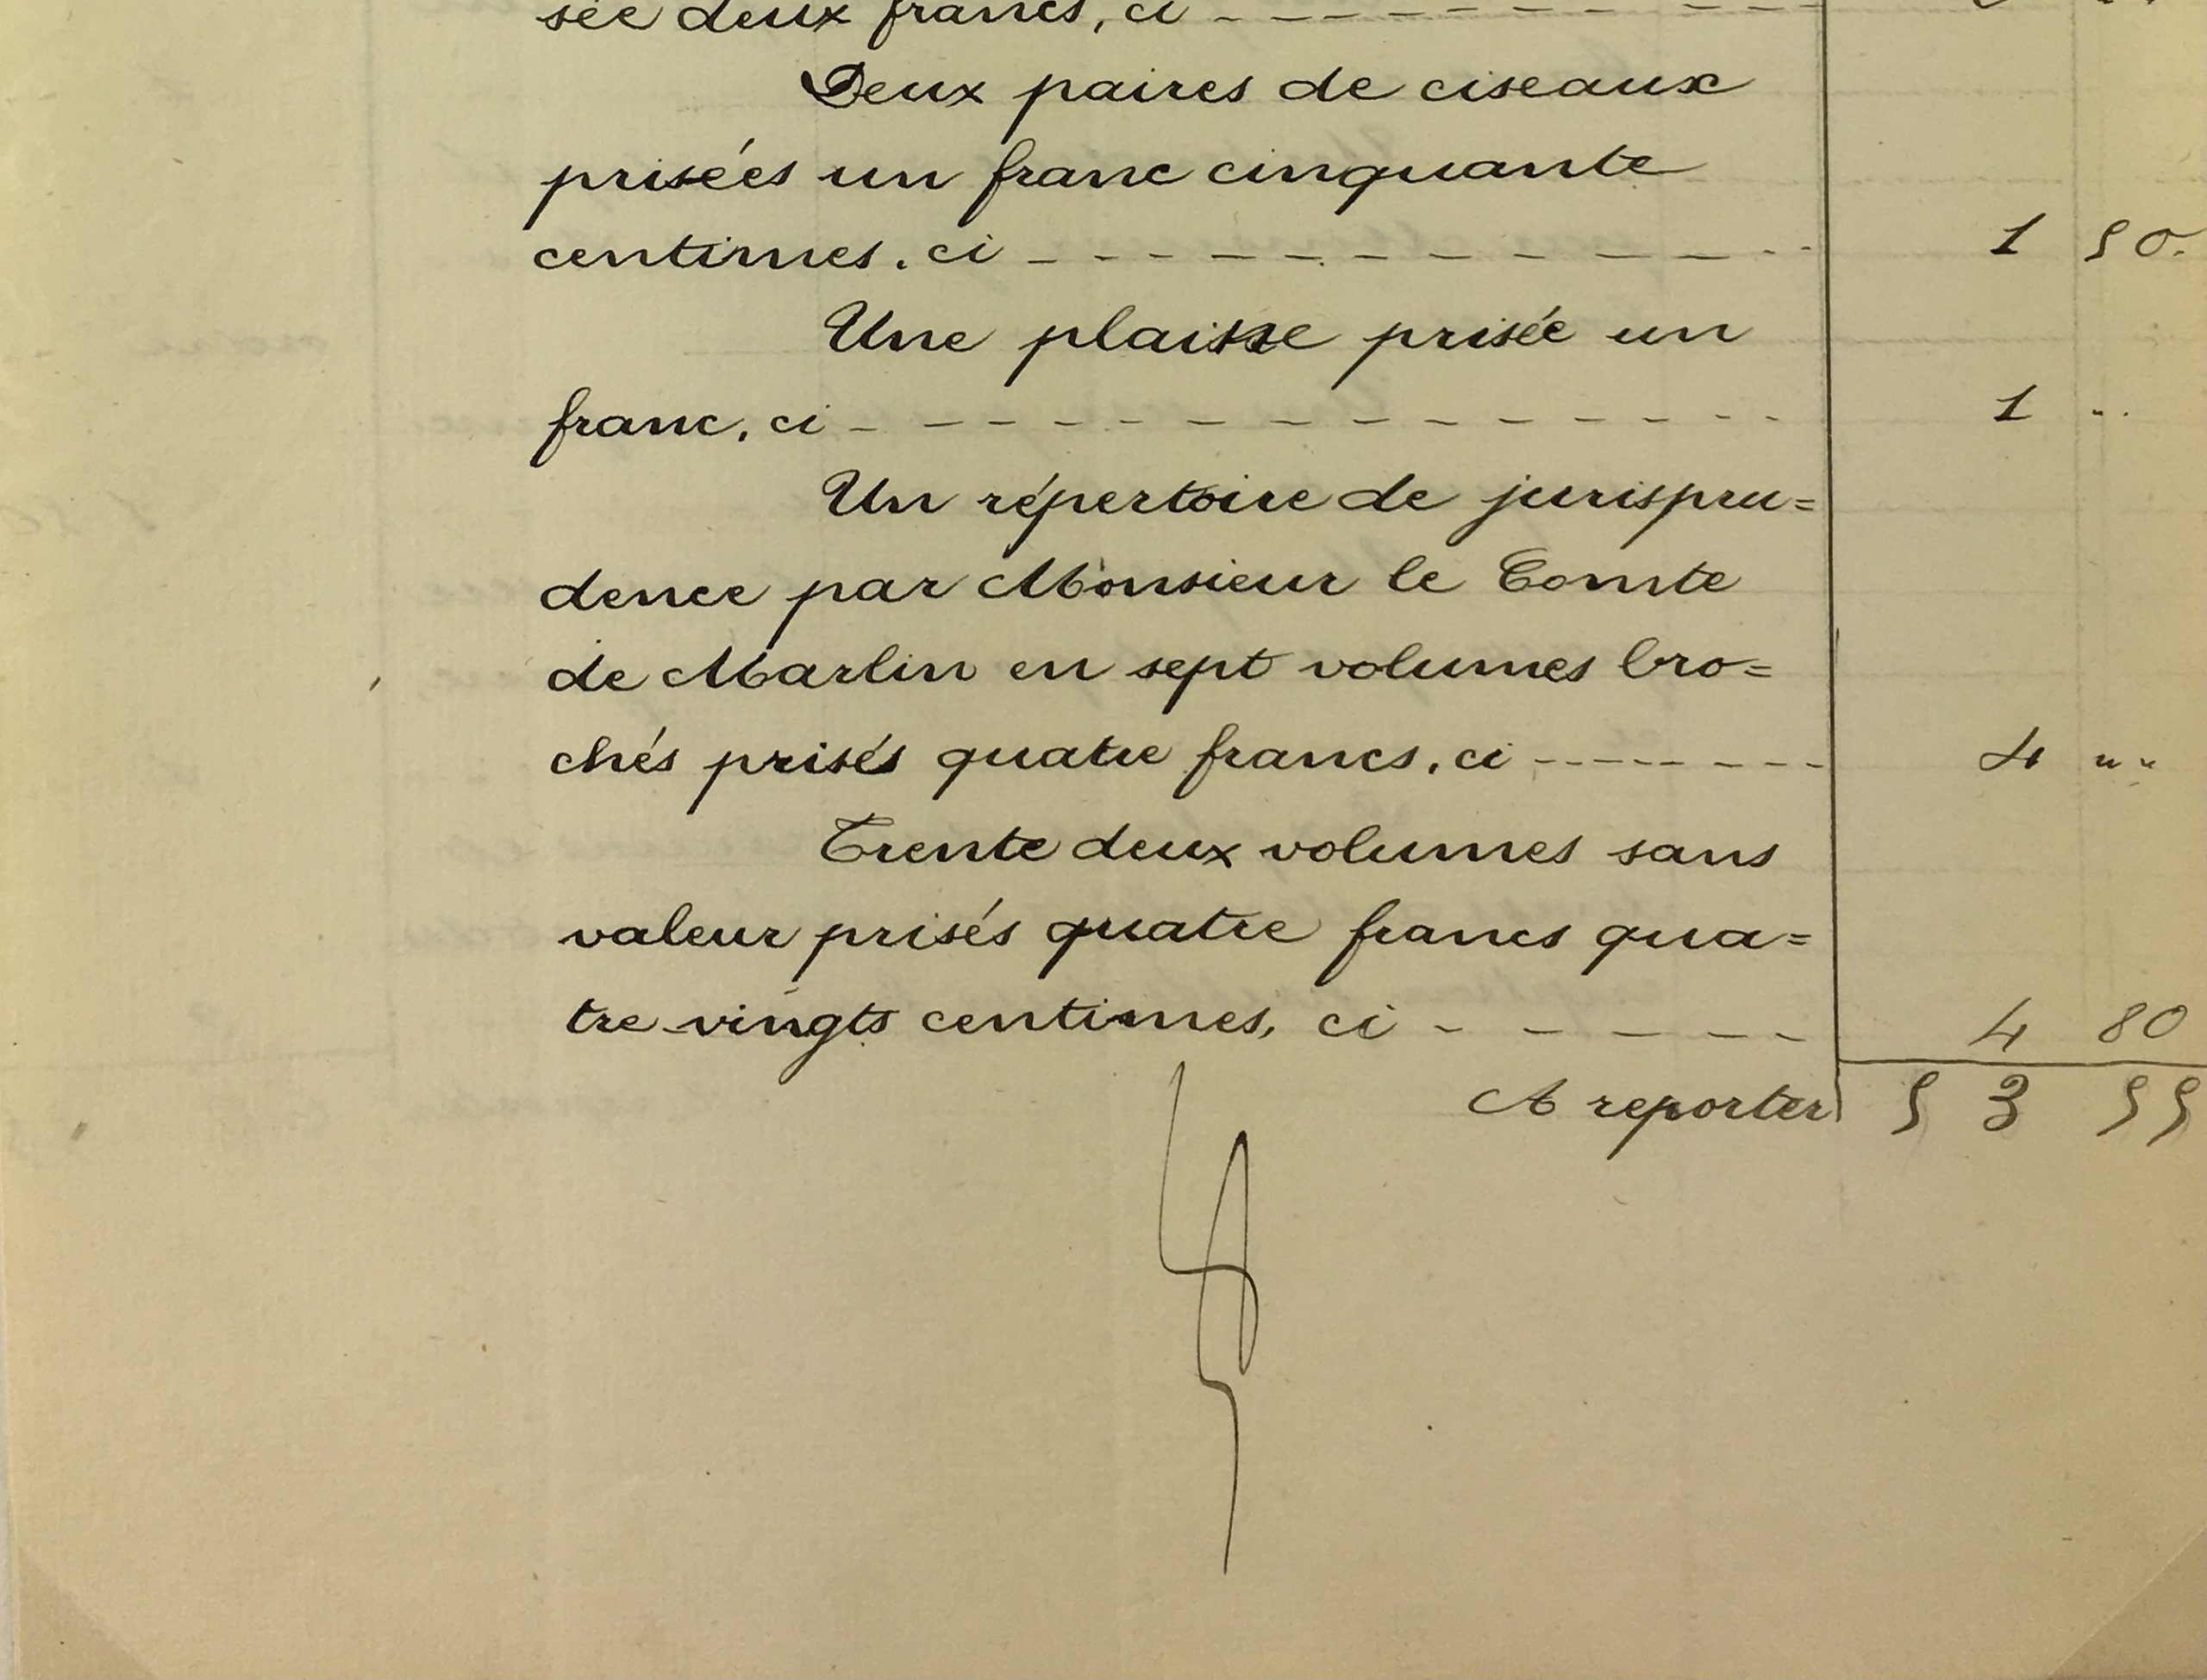 sée deux francs, ci - - - - - - - - -
Deux paires de ciseaux
prisées un franc cinquante
centimes. ci - - - - - - - - - - - - 1 50.
Une prisée un
franc, ci - - - - - - - - - - - - - - 1 "
Un répertoire de jurispru=
dence par Monsieur le Comte
de Marlin en sept volumes bro=
chés prisés quatre francs, ci - - - - - - - 4 " "
Trente deux volumes sans
valeur prisés quatre francs qua=
tre-vingts centimes, ci - - - - - 4 80
A reporter 53 55